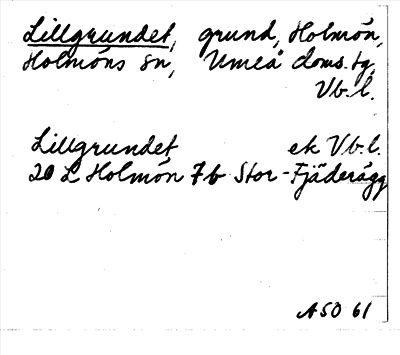 Lillgrundet, grund, Holmön,
Holmöns sn, Umeå doms.tg,
Vb.l.
Lillgrundet ek Vb.l.
20 L Holmön 7b Stor-Fjäderägg
ASO 61